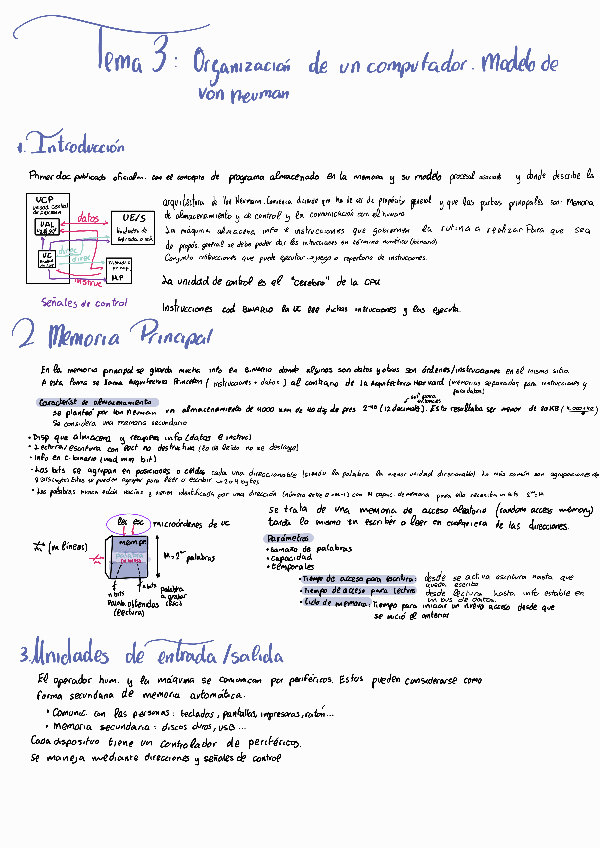 Tema 3: Organización de un computador. Modelo de
Von Neuman
1. Introducción
Primer doc publicado oficialm. con el concepto de programa almacenado en la memoria y su modelo procesal asociado y donde describe la
arquitectura de Von Neumann. Comienza diciendo que ha de ser de propósito general y que las partes principales son: Memoria
de almacenamiento y de control y la comunicación con el humano
La máquina almacena info e instrucciones que gobiernen la rutina a realizar. Para que sea
de propós. general se debe poder dar las intrucciones en término numérico (binario)
Conjunto instrucciones que puede ejecutar → juego o repertorio de instrucciones.
La unidad de control es el "cerebro" de la CPU
Instrucciones cod BINARIO la UC lee dichas intrucciones y las ejecuta.
UCP
Unidad central
UAL
datos
UE/S
Unidades de
entrada o sal.
UC
direc
direc
instruc
M.P
Señales de control
2 Memoria Principal
En la memoria principal se guarda mucha info en BINARIO donde algunos son datos y otros son órdenes/instrucciones en el mismo sitio.
A esta forma se llama Arquitectura Princeton (instrucciones + datos) al contrario de la Arquitectura Harvard (memorias separadas para instrucciones y
para datos)
Característ de almacenamiento
Se planteó por Von Neman un almacenamiento de 4000 núm de 40 díg de pres 2⁻⁴⁰ (12 decimales). Esto resultaba ser menor de 20KB
Se considera una memoria secundaria
• Disp que almacena y recupera info (datos e instruc)
• Lectura/escritura con lect no destructiva (lo ya leído no se destruye)
• Info en C. binario
• Los bits se agrupan en posiciones o celdas cada una direccionable (siendo la palabra la menor unidad direccionable). Lo más común son agrupaciones de
• Las palabras nunca están vacías y vienen identificada por una dirección
lec esc
microórdenes de UC
mem pr.
palabra
(m líneas)
M=2ᵐ palabras
n bits
Palabra obtenida
(lectura)
n bits
palabra
a grabar
Se trata de una memoria de acceso aleatorio (random access memory)
tarda lo mismo en escribir o leer en cualquiera de las direcciones.
Parámetros
• tamaño de palabras
• capacidad
• temporales
• Tiempo de acceso para escritura: desde se activa escritura hasta que
queda escrito
• Tiempo de acceso para lectura: desde lectura hasta info estable en
un bus de datos.
• Ciclo de memoria: Tiempo para iniciar un nuevo acceso desde que
se inició el anterior
3. Unidades de entrada/salida
El operador hum. y la máquina se comunican por periféricos. Estos pueden considerarse como
forma secundaria de memoria automática.
• Comunic. con las personas: teclados, pantallas, impresoras, ratón...
• Memoria secundaria: discos duros, USB...
Cada dispositivo tiene un controlador de periférico.
Se maneja mediante direcciones y señales de control